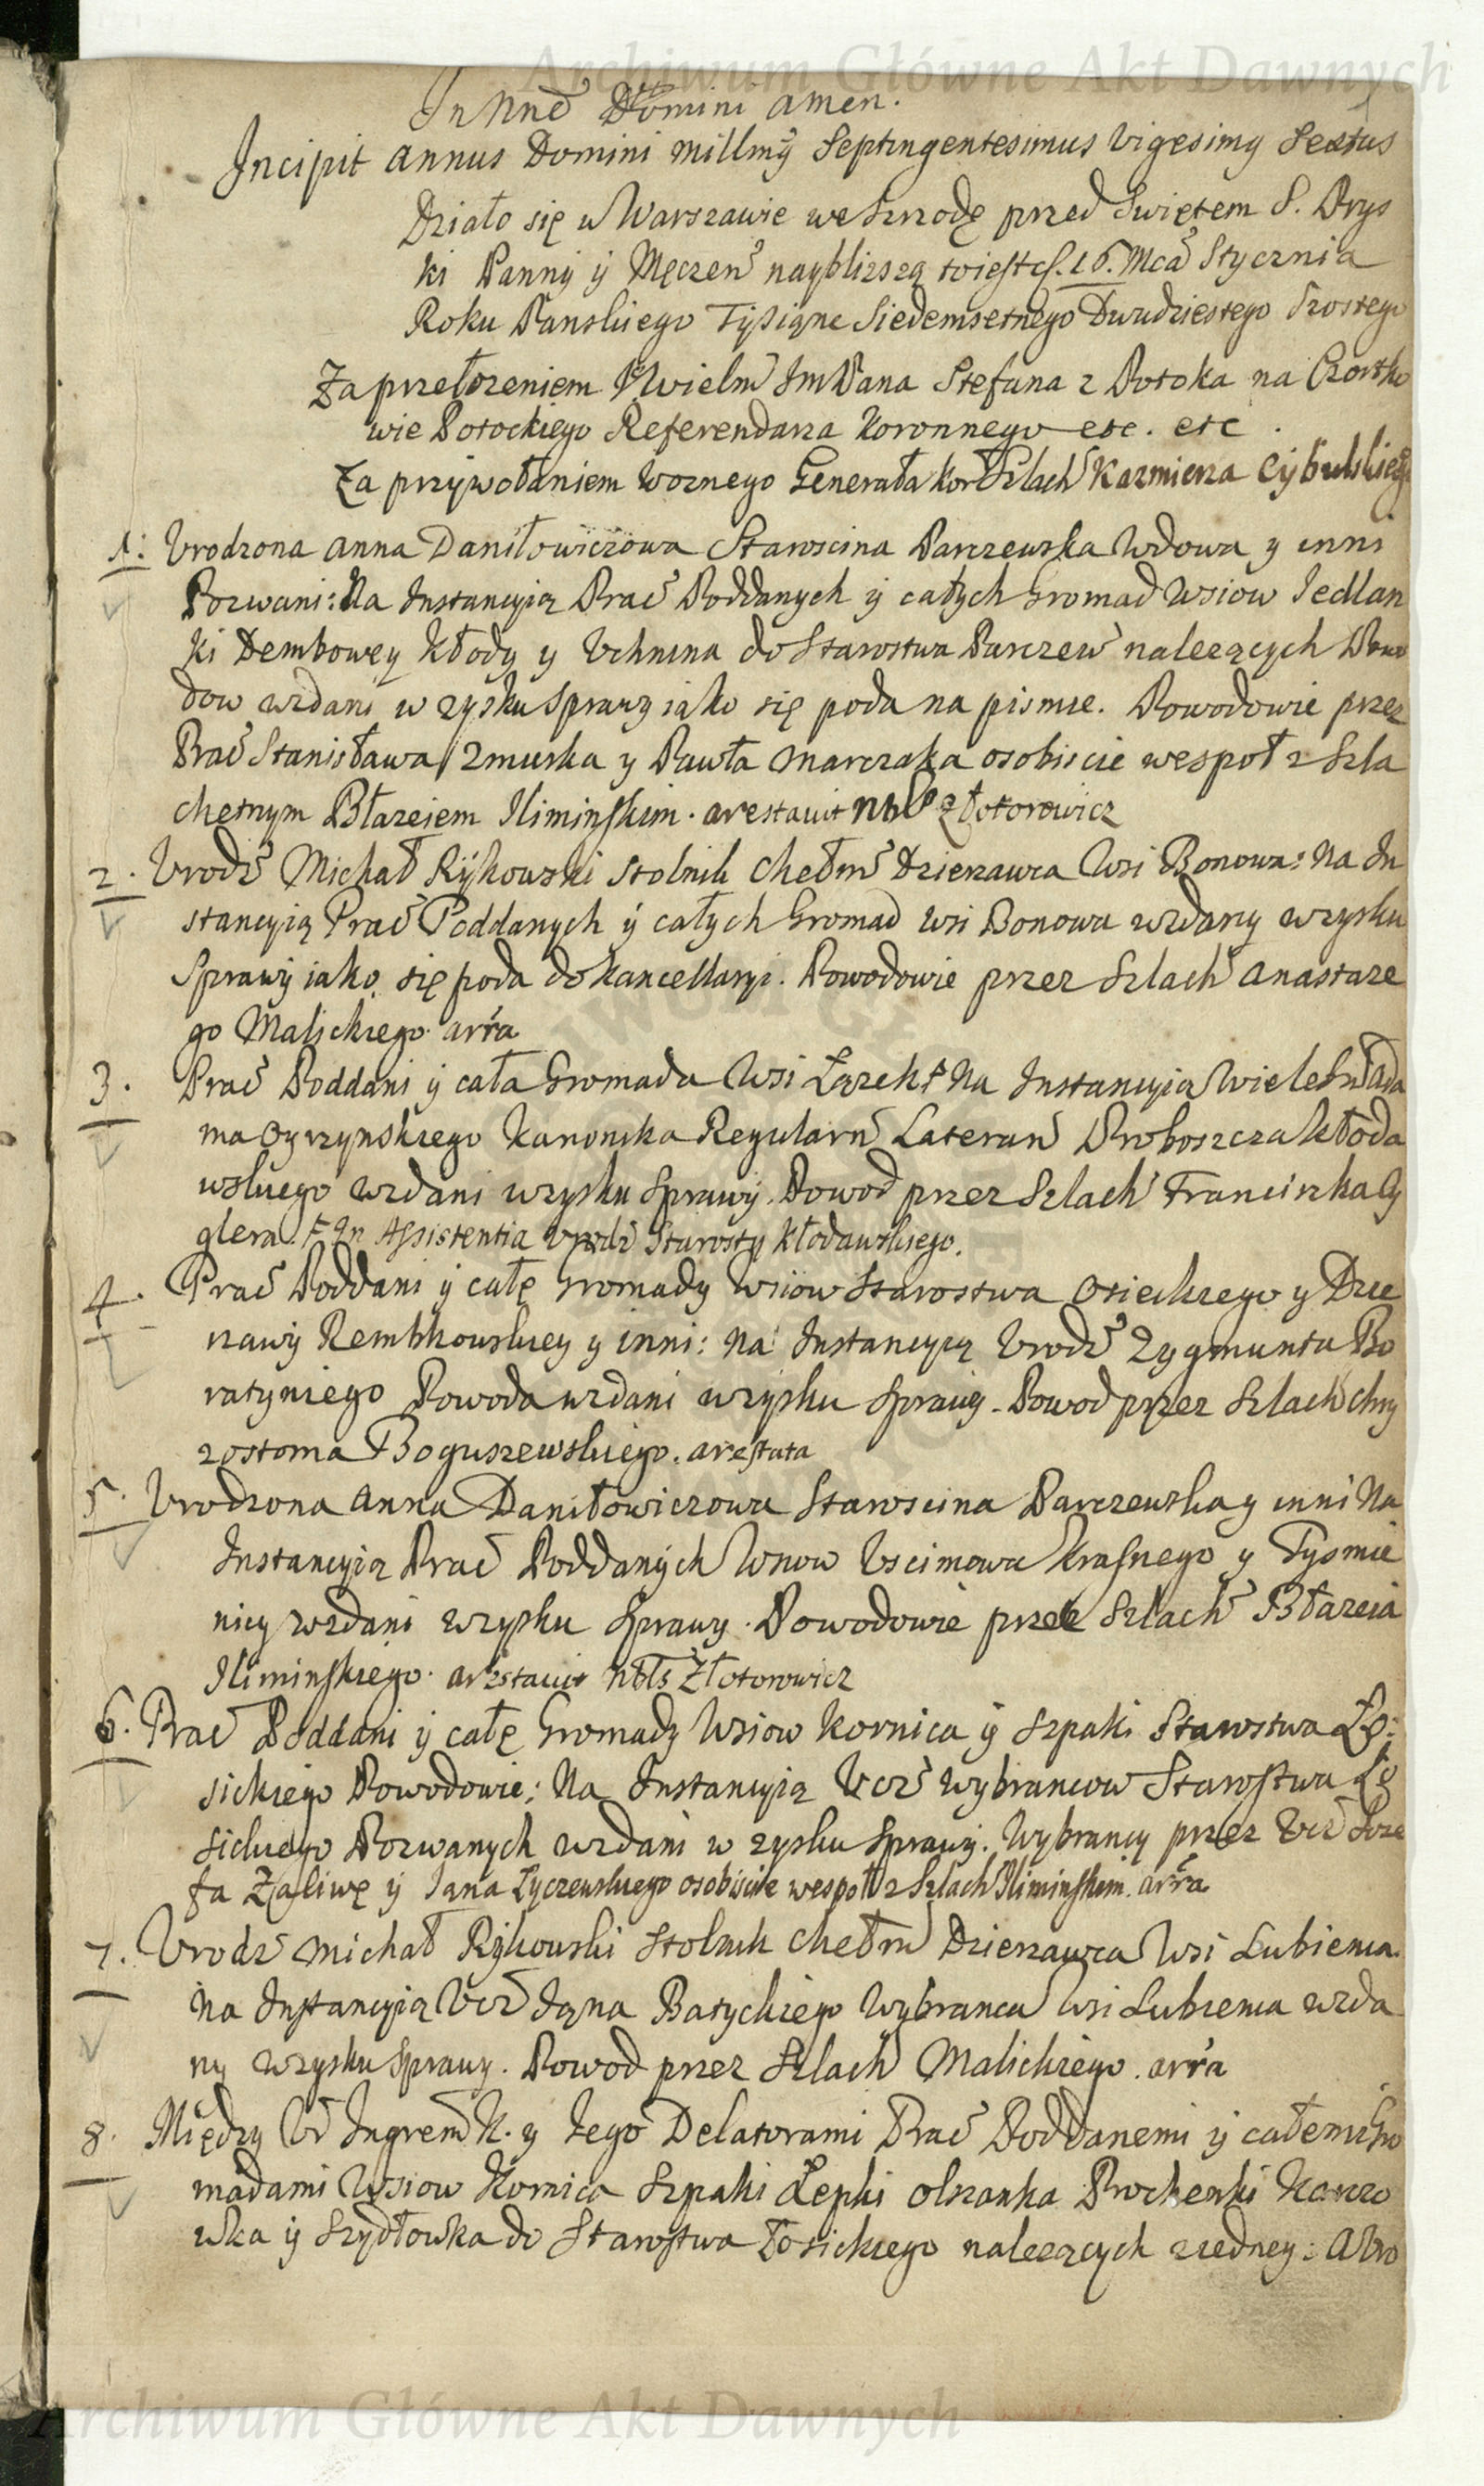 Archiwum Główne Akt Dawnych
In Nne Domini amen.
Incipit annus Domini millmg Septingentesimus Vigesimg Sextus
Działo się w Warszawie we Szrzodę przed Swiętem S. Prys
ki Panny ÿ Męczen naybliszszą to iest d. 16. Mca Stycznia
Roku Panskiego Tysiąnc Siedemsetnego Dwudziestego Szostego
Za przełozeniem JWielm JmPana Stefana z Potoka na Czortko
wie Potockiego Referendarza Koronnego etc. etc.
Za przywołaniem Woznego Generała Kor Szlach Kazmierza Cybulskieg
1: Vrodzona Anna Daniłowiczowa Starościna Parczewska Wdowa y inni
Pozwani: Na Instancyią Prac Poddanych ÿ całych Gromad Wsiow Jedlan
ki Dembowey Kłody y Vchnina do Starostwa Parczew nalezących Powo
dow wzdani w zysku sprawy iako się poda na pismie. Powodowie przez
Prac Stanisława Zmuska y Pawła Marczaka osobiscie wespoł z Szla
chetnym Błazeiem Iliminskim. arestavit Nbl Złotorowicz
2. Vrodz Michał Ryikowski Stolnik Chełm Dzierzawca Wsi Bonowa: Na In
stancyią Prac Poddanych ÿ całych Gromad wsi Bonowa wzdany w zysku
Sprawÿ iako się poda do Kancellaryi. Powodowie przez Szlach Anastaze
go Malickiego. arta
3. Prac Poddani ÿ cała Gromada Wsi Łązek ⸸ Na Instancyią Wieleb Ada
ma Oyrzynskiego Kanonika Regularn Lateran Proboszcza Kłoda
wskiego wzdani w zysku Sprawÿ. Powod przez Szlach Franciszka Cy
glera. ⸸ In Assistentia Vrodz Starosty Kłodawskiego.
4. Prac Poddani ÿ całę Gromady Wsiow Starostwa Osieckiego y Dzie
rzawÿ Rembkowskiey y inni: Na Instancyią Vrodz Zygmunta Bo
ratyniego Powoda wzdani w zysku sprawy. Powod przez Szlach Chry
zostoma Boguszewskiego. arestata
5. Vrodzona Anna Daniłowiczowa Starościna Parczewska y inni Na
Instancyią Prac Poddanÿch Wsiow Vscimowa Krasnego y Tysmie
nicy wzdani w zysku sprawy. Powodowie przez Szlach Błazeia
Iliminskiego. arestavit Nbls Złotorowicz
6. Prac Poddani ÿ całę Gromady Wsiow Kornica ÿ Szpaki Starostwa Ło:
sickiego Powodowie: Na Instancyią Vcz Wybrancow Starostwa Ło
sickiego Pozwanych wzdani w zysku sprawÿ. Wybrancy przez Vcz Joze
fa Zaliwę ÿ Jana Łyczewskiego osobiscie wespoł z Szlach Iliminskim. arta
7. Vrodz Michał Ryikowski Stolnik Chełm Dzierzawca Wsi Lubienia.
Na Instancyią Vcz Jana Batyckiego Wybranca Wsi Lubienia wzda
ny w zysku sprawy. Powod przez Szlach Malickiego. arta
8. Między Vr Ingrem K. y Jego Delatorami Prac Poddanemi ÿ całemi Gro
madami Wsiow Kornica Szpaki Łepki Olszanka Prochenki
wka ÿ Szydłowka do Starostwa Łosickiego nalezących z iedney: A Vro
Archiwum Główne Akt Dawnych